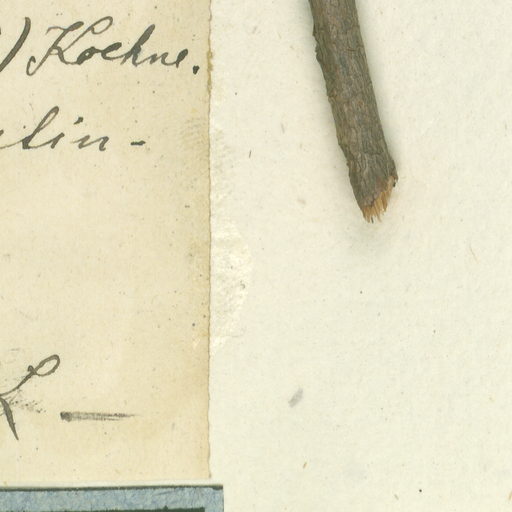 ) Koehne.
lin-
L —